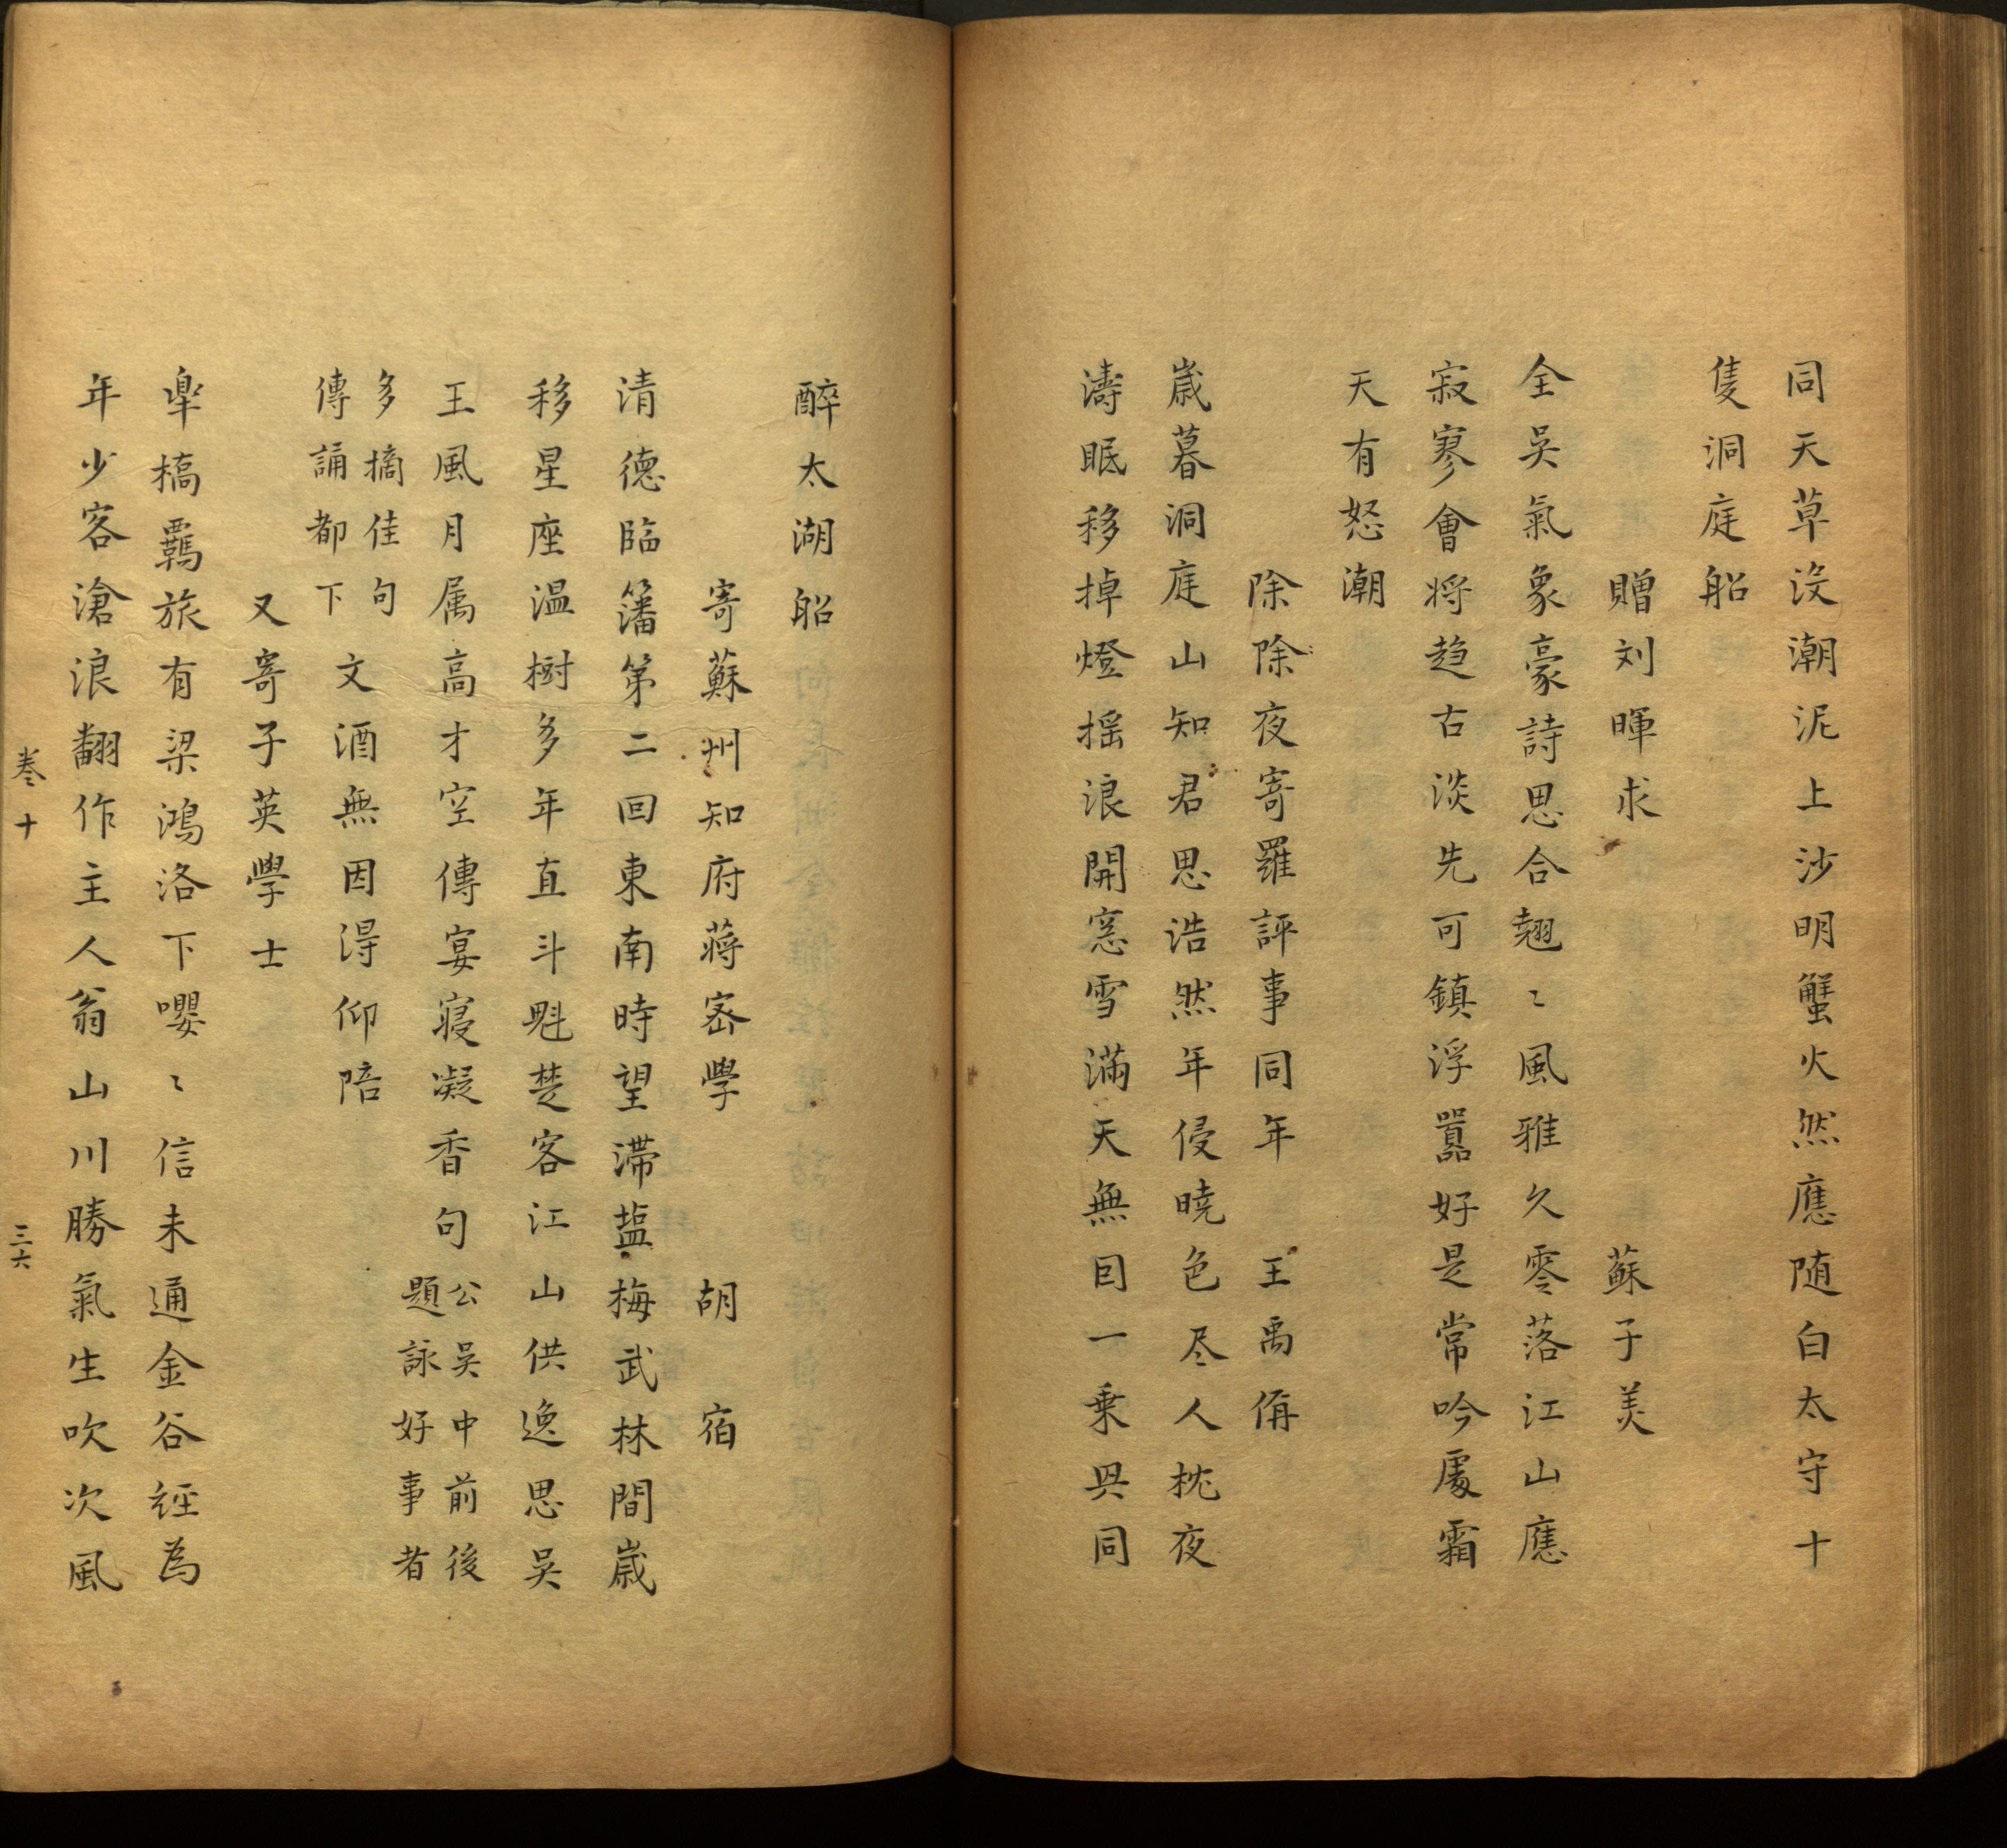 同天草没潮泥上沙明蟹火然應随白太守十
隻洞庭船
贈刘暉求　蘇子美
全吳氣象豪詩思合翹〻風雅久零落江山應
寂寥會将趋古淡先可鎮浮囂好是常吟處霜
天有怒潮
除除夜寄羅評事同年　王禹偁
歳暮洞庭山知君思浩然年侵曉色尽人枕夜
濤眠移掉燈揺浪開窓雪滿天無因一乗興同
醉太湖船
寄蘇州知府蔣密學　胡宿
清德臨籓第二回東南時望滞塩梅武林間歳
移星座温樹多年直斗魁楚客江山供逸思吳
王風月属高才空傳宴寝凝香句公吳中前後
題詠好事者
多摘佳句
傳誦都下文酒無因淂仰陪
又寄子英學士
皐橋羇旅有梁鴻洛下嚶〻信未通金谷經為
年少客滄浪翻作主人翁山川勝氣生吹次風
卷十
三六